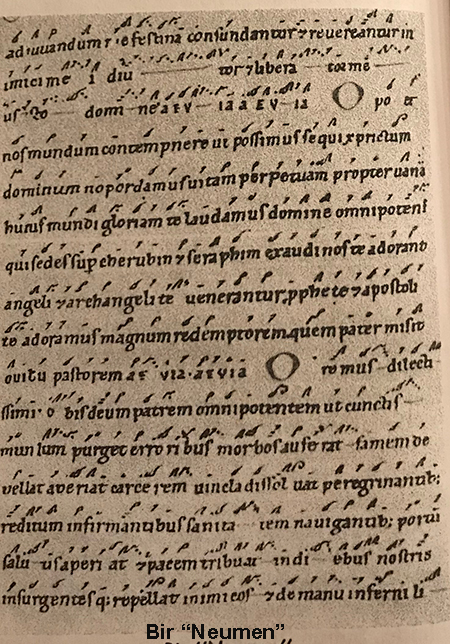 adiuuandum me festina confundantur & reuereantur in
imici me i diu tor & libera tor mé
us domi ne aeu ia a eu ia O po & 
nos mundum contempnere ut possimus sequi xpictum
dominum no perdamus uitam perpetuam propter uana
huius mundi gloriam te laudamus domine omnipotens
qui sedes sup cherubin & seraphim exaudi nos te adorant
angeli & archangeli te uenerantur pphete & apostoli
te adoramus magnum redemptorem quem pater misit
ouibus pastorem ae uia aeuia O remus dilecti
ssimi o bis deum patrem omnipotentem ut cunctis
mundum purget erro ri bus morbos auferat famem de
pellat aperiat carce rem uincla dissol uat peregrinantib;
reditum infirmantibus sanita tem nauigantib; portū
salu tis aperi at & pacem tribuat in di ebus nostris
insurgentesq; repellat inimicos & de manu inferni li
Bir “Neumen”